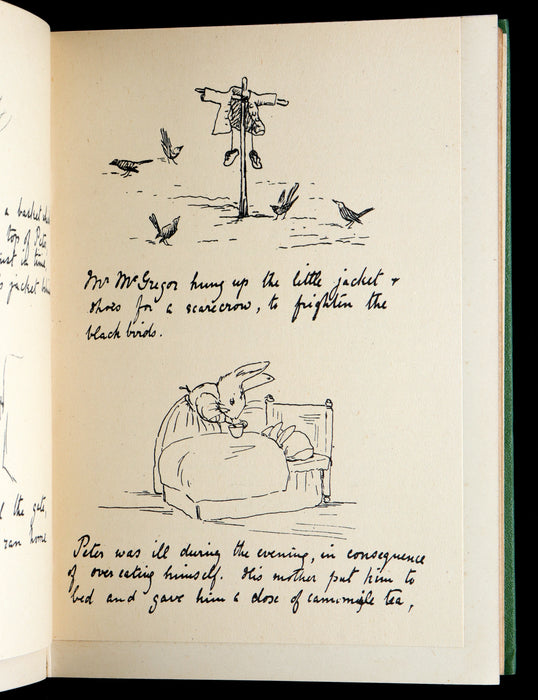 a basket
top of Peter
just in time,
's jacket
the gate,
ran home
Mr McGregor hung up the little jacket +
shoes for a scarecrow, to frighten the
black birds.
Peter was ill during the evening, in consequence
of over eating himself. His mother put him to
bed and gave him a dose of camomile tea,